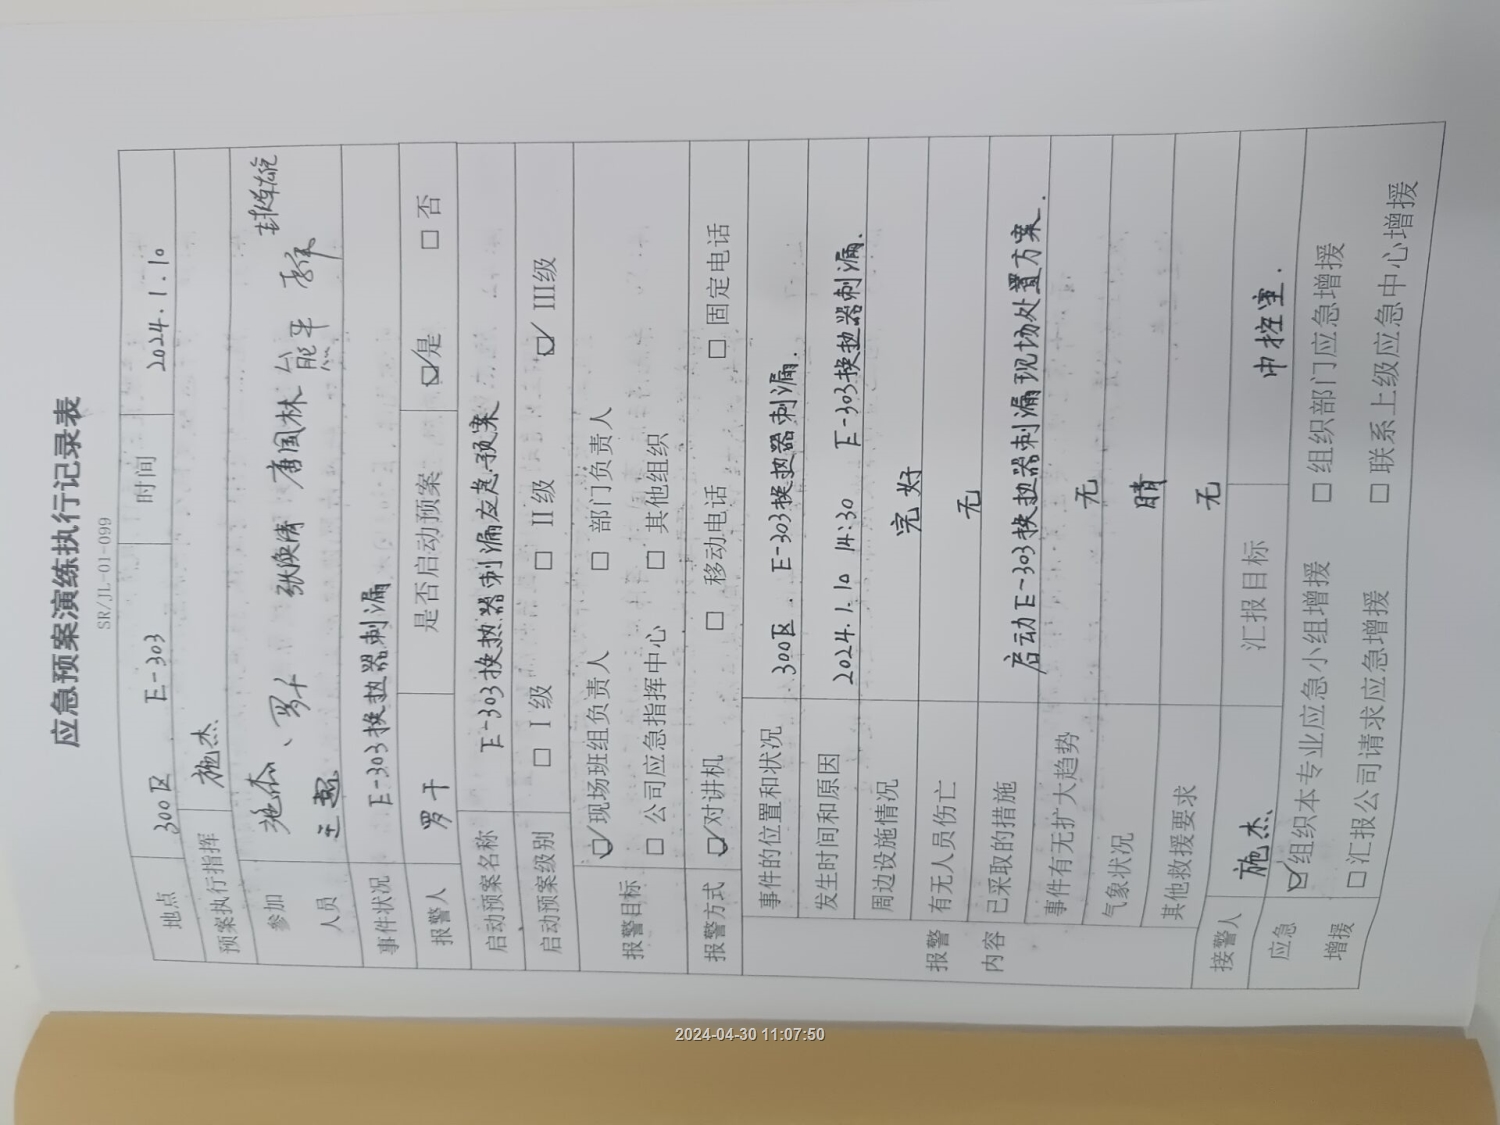 应急预案演练执行记录表
SR/JL-01-099
地点 300区 E-303 时间 2024.1.10
预案执行指挥 施杰
参加 施杰、罗 张焕清 唐国林 熊平
人员
事件状况 E-303换热器刺漏
报警人 罗干 是否启动预案 ☑是 □否
启动预案名称 E-303换热器刺漏应急预案
启动预案级别 □ I级 □ II级 ☑ III级
报警目标 ☑现场班组负责人 □ 部门负责人
□ 公司应急指挥中心 □ 其他组织
报警方式 ☑对讲机 □ 移动电话 □ 固定电话
报警
内容
事件的位置和状况 300区. E-303换热器刺漏.
发生时间和原因 2024.1.10 14:30 E-303换热器刺漏.
周边设施情况 完好
有无人员伤亡 无
已采取的措施 启动E-303换热器刺漏现场处置方案.
事件有无扩大趋势 无
气象状况 晴
其他救援要求 无
接警人 施杰 汇报目标 中控室.
应急
增援
☑组织本专业应急小组增援 □ 组织部门应急增援
□ 汇报公司请求应急增援 □ 联系上级应急中心增援
2024-04-30 11:07:50